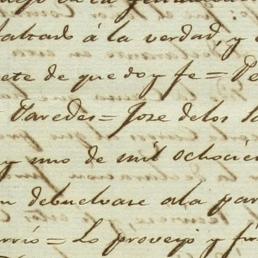 altado á la verdad, y
ete de que doy fe = Pe
Paredes = Jose de los
y uno de mil ochocien
n debuelvase ala par
rrio = Lo proveyo y fi